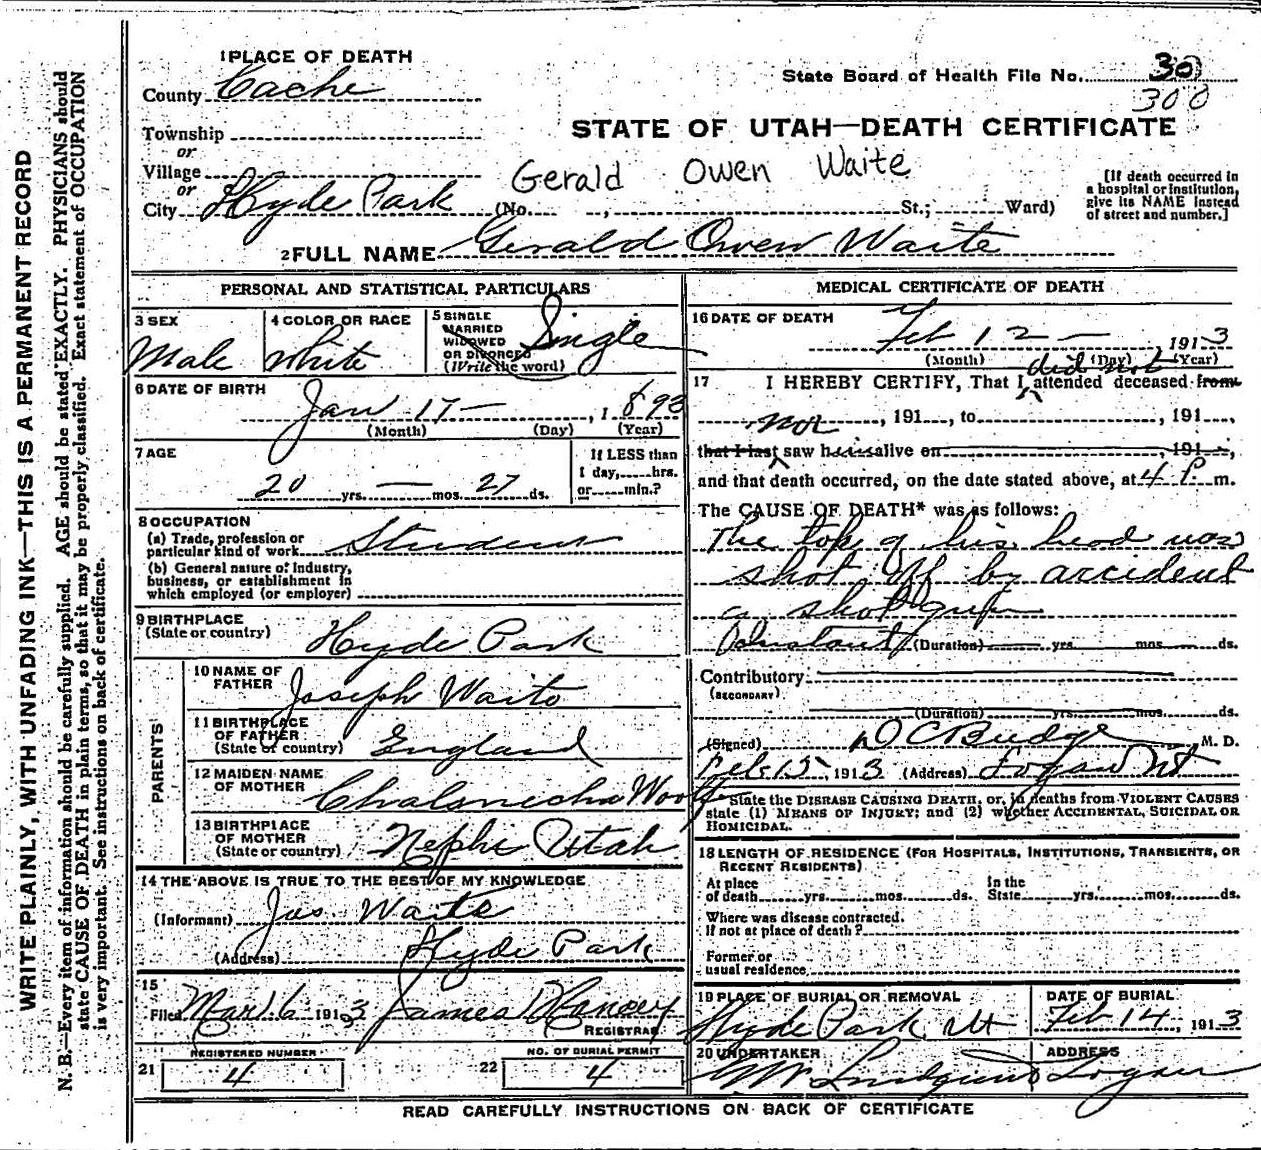 WRITE PLAINLY, WITH UNFADING INK—THIS IS A PERMANENT RECORD
N. B.—Every item of information should be carefully supplied. AGE should be stated EXACTLY. PHYSICIANS should
state CAUSE OF DEATH in plain terms, so that it may be properly classified. Exact statement of OCCUPATION
is very important. See instructions on back of certificate.
1 PLACE OF DEATH
County Cache
Township
or
Village
or
City Hyde Park (No. , St.; Ward)
State Board of Health File No. 30
300
STATE OF UTAH—DEATH CERTIFICATE
Gerald Owen Waite
[If death occurred in
a hospital or institution,
give its NAME instead
of street and number.]
2 FULL NAME Gerald Owen Waite
PERSONAL AND STATISTICAL PARTICULARS
3 SEX
Male
4 COLOR OR RACE
White
5 SINGLE
MARRIED
WIDOWED
OR DIVORCED
(Write the word)
Single
6 DATE OF BIRTH
Jan 17— , 1 893
(Month) (Day) (Year)
7 AGE
20 yrs. — mos. 27 ds.
If LESS than
1 day, hrs.
or min.?
8 OCCUPATION
(a) Trade, profession or
particular kind of work Student
(b) General nature of Industry,
business, or establishment in
which employed (or employer)
9 BIRTHPLACE
(State or country) Hyde Park
PARENTS
10 NAME OF
FATHER Joseph Waite
11 BIRTHPLACE
OF FATHER
(State or country) England
12 MAIDEN NAME
OF MOTHER Woolf
13 BIRTHPLACE
OF MOTHER
(State or country) Nephi Utah
14 THE ABOVE IS TRUE TO THE BEST OF MY KNOWLEDGE
(Informant) Jos Waite
(Address) Hyde Park
15
Filed Mar. 6 1913 James
REGISTRAR
REGISTERED NUMBER
21 4
NO. OF BURIAL PERMIT
22 4
MEDICAL CERTIFICATE OF DEATH
16 DATE OF DEATH
Feb 12— , 1913
(Month) (Day) (Year)
did not
17 I HEREBY CERTIFY, That I attended deceased from
nor , 191 , to , 191 ,
that I last saw him alive on , 191 ,
and that death occurred, on the date stated above, at 4 P. m.
The CAUSE OF DEATH* was as follows:
The top of his head was
shot off by accident
a shot gun
Instant (Duration) yrs. mos. ds.
Contributory
(SECONDARY)
(Duration) yrs. mos. ds.
(Signed) D C Budge M. D.
Feb 15, 1913 (Address) Logan Ut
State the DISEASE CAUSING DEATH, or, in deaths from VIOLENT CAUSES
state (1) MEANS OF INJURY; and (2) whether ACCIDENTAL, SUICIDAL OR
HOMICIDAL.
18 LENGTH OF RESIDENCE (FOR HOSPITALS, INSTITUTIONS, TRANSIENTS, OR
RECENT RESIDENTS)
At place
of death yrs. mos. ds.
In the
State yrs. mos. ds.
Where was disease contracted.
If not at place of death?
Former or
usual residence
19 PLACE OF BURIAL OR REMOVAL
Hyde Park Ut
DATE OF BURIAL
Feb 14, 1913
20 UNDERTAKER
ADDRESS
Logan
READ CAREFULLY INSTRUCTIONS ON BACK OF CERTIFICATE